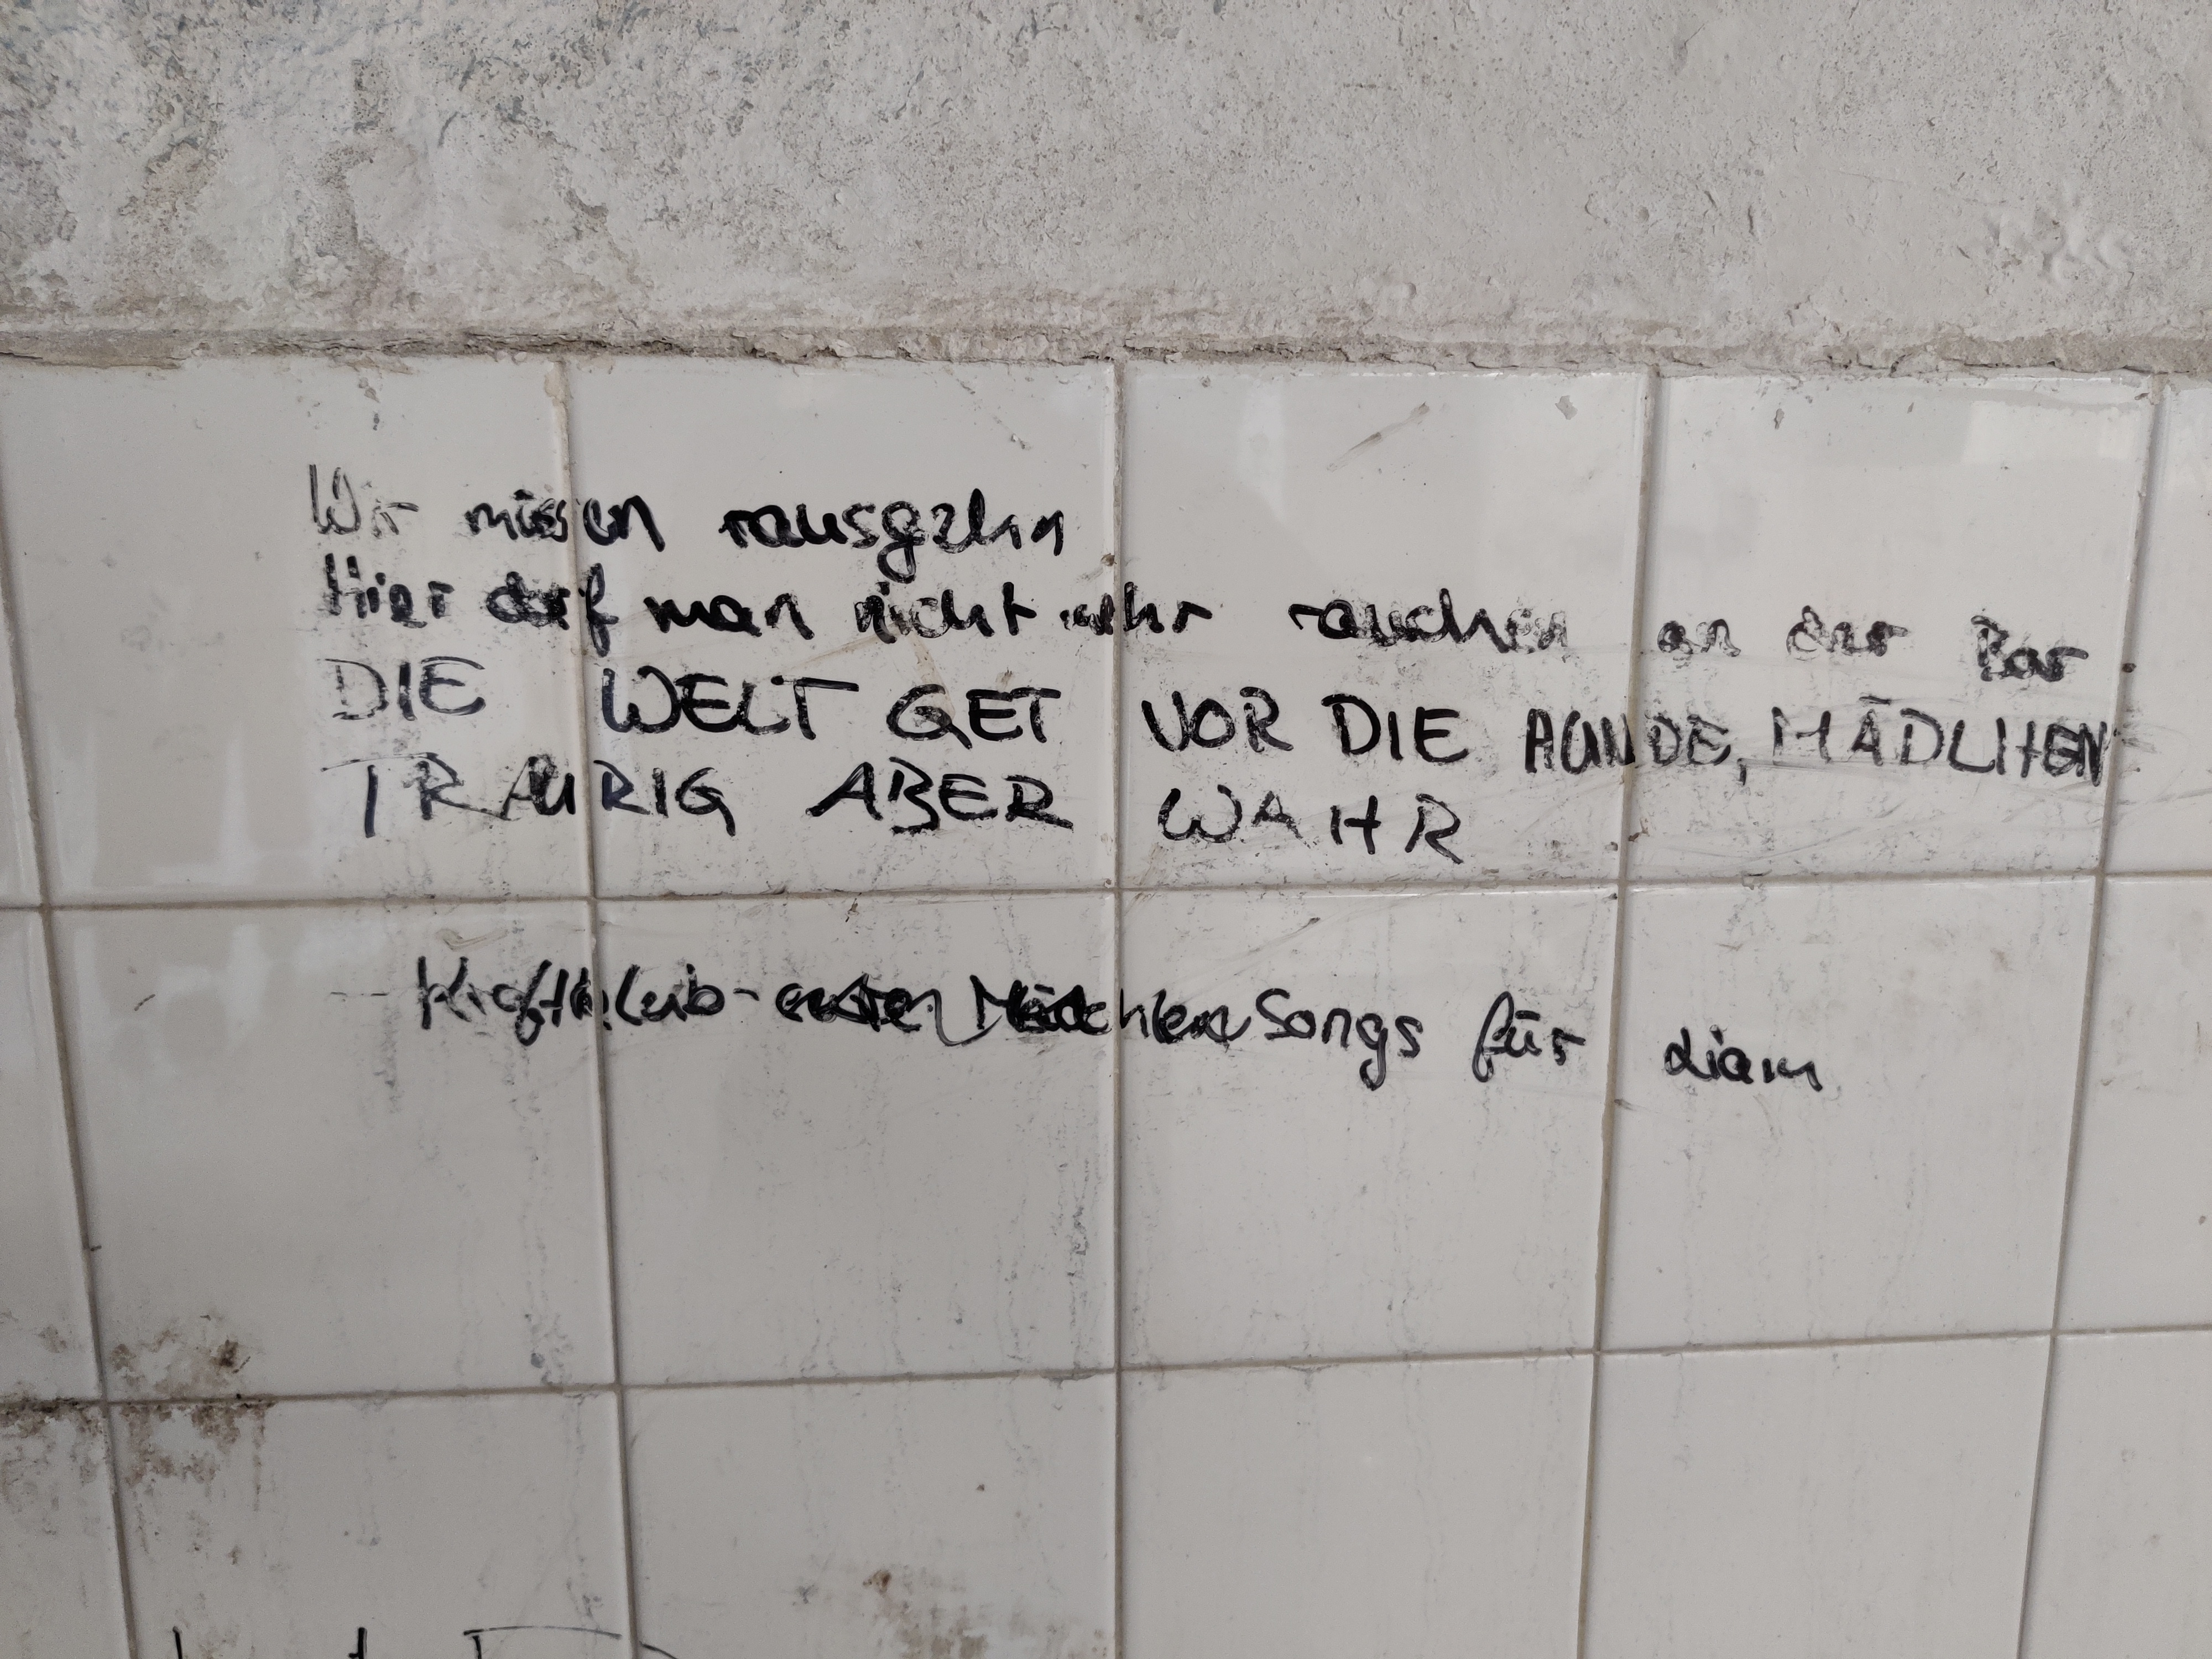 Wir müssen rausgehn
Hier darf man nicht mehr rauchen an der Bar
DIE WELT GET VOR DIE HUNDE, MÄDCHEN
TRAURIG ABER WAHR
- Kraftklub - Songs für Liam